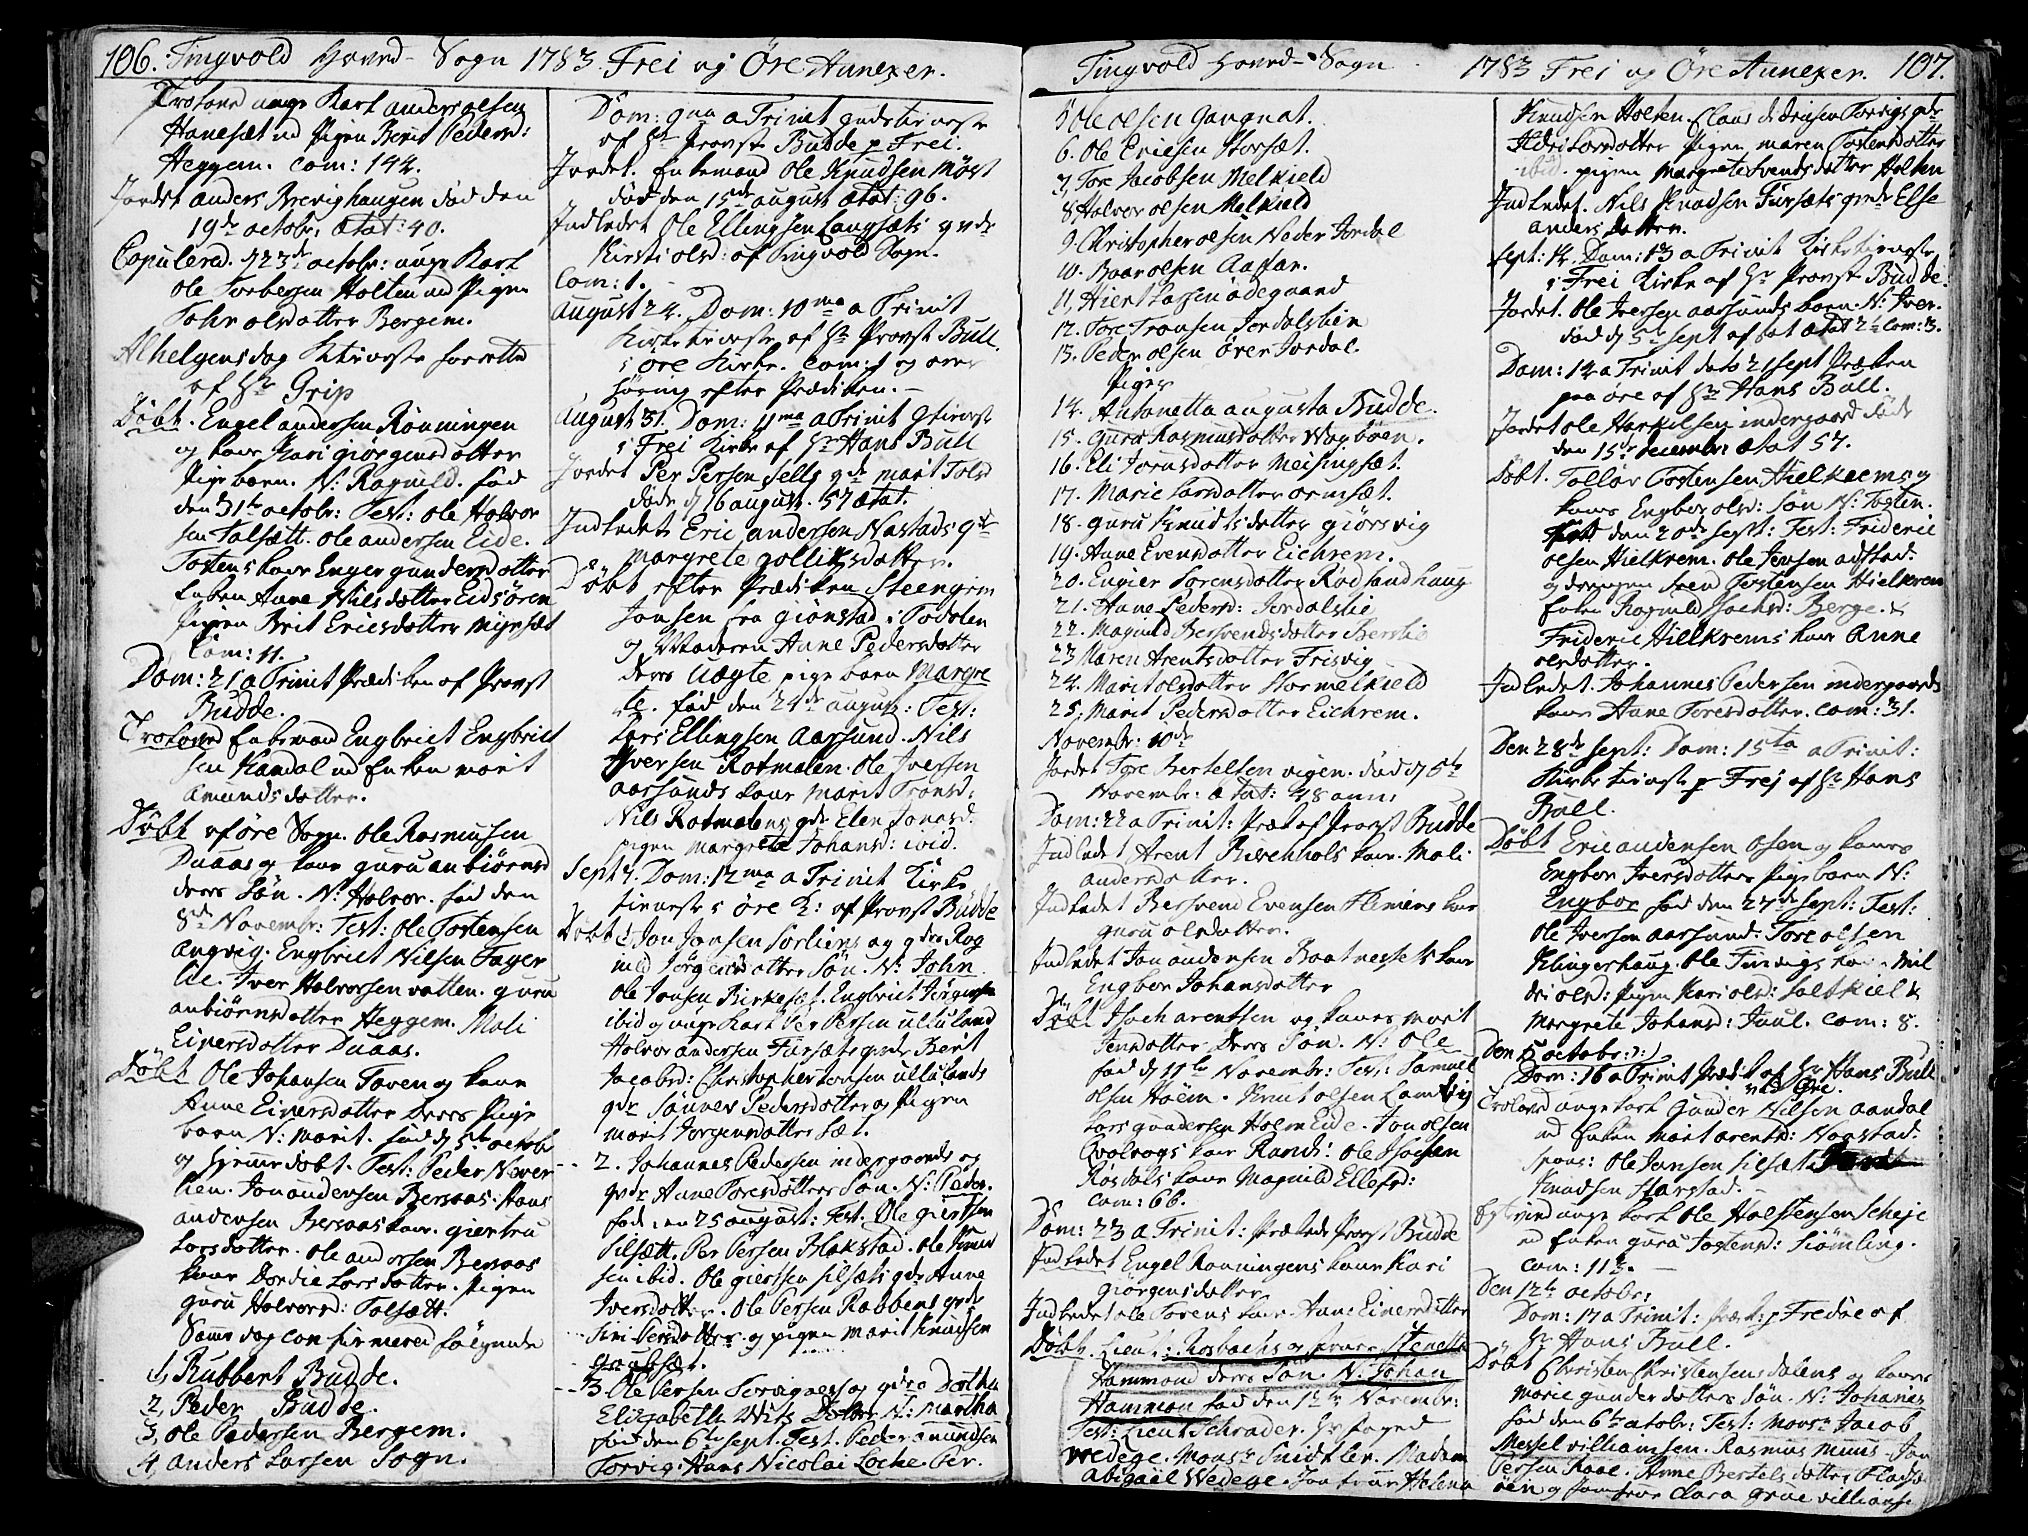 106. Tingvold Hoved-Sogn 1783. Frei og Öre Annexer.
Troloved unge Karl anders olsen
Hanesæt ed Pigen Berit Pedersd:
Heggem. Com: 142.
Jordet anders Brevighaugen død den
19de octobr. ætat: 40.
Copulered. d 23de octobr: unge Karl
Ole Torbersen Holten ed Pigen
olsdatter Bergem.
Alhelgensdag forrettet
af Hr Grip
Döbt. Engel andersen Rönningen
og kone Kari giörgensdatter
Pige barn. N: Ragnild. fød
den 31te octobr: Test: ole Halvor
sen Talsætt. ole andersen Eide.
Tostens kone Enger gundersdatter
Enken Anne Nilsdatter Eidsören
Pigen Brit Ericsdatter Myrsæt
Com: 11.
Dom: 21 a Trinit Prædiken af Provst
Budde.
Troloved Enkemand Engbrict Engbrict
sen Kandal ed Enken marit
Amundsdatter.
Döbt af öre Sogn. Ole Rasmusen
Duaas og kone guru anbiörnsd
deres Sön. N: Halvor. fød den
8de Novembr: Test: ole Tostensen
angvig. Engbrict Nilsen Fager
lie. Iver Halvorsen vatten. guru
anbiörnsdatter Heggem. Mali
Einersdatter Duaas.
Döbt Ole Johansen Toven og kone
Anne Einersdatter Deres Pige
barn N: marit. fød d 5te octobr
og hjemmedöbt. Test: Peder Never
lien. Jon andersen Bersaas. Hans
andersen Bersaas kone. giertru
Larsdatter. ole andersen Bersaas
kone Dordie Larsdatter. Pigen
guru Halvorsd: Talsætt.
Samme dag confirmered fölgende
1, Rubbert Budde.
2, Peder Budde.
3, ole Pedersen Bergem.
4, anders Larsen Sogn.
Dom: 9na a Trinit
af Hr Provst Budde p Frei.
Jordet. Enkemand Ole Knudsen Möst
død den 15de august ætat: 96.
Indledet Ole Ellingsen Langsæts
Kirsti olsd: af Tingvold Sogn.
Com: 1.
August 24. Dom: 10ma a Trinit
Kirketieneste af Hr Provst Bull
i öre Kirke. Com: 1 og over
höring efter Prædiken. -
August 31. Dom: 11ma a Trinit
i Frei Kirke af Hr Hans Bull
Jordet Per Persen Sells marit Tolsd
døde d 16 august. 57 ætat.
Indledet Eric andersen Nastads
Margrete gollicksdatter.
Döbt efter Prædiken Steengrim
Jonsen fra giönstad i Todalen
og Moderen Anne Pedersdatter
deres uægte pige barn Margre
te. fød den 24de august: Test:
Lars Ellingsen Aarsund. Nils
Iversen Rotmalen. Ole Iversen
aarsunds kone marit Tronsd:
Nils Rotmalens Elen Jonasd:
pigen margrete Johansd: ibid.
Sept 7. Dom: 12ma a Trinit Kirke
tieneste i öre K: af Provst Budde
Döbt 1 Jon Jonsen Sorliens og Rag
nild Jörgensdatter Sön. N: John
Ole Jonsen Birkesæt. Engbrict Jörgensen
ibid og unge Karl Per Persen ullaland
Halvor andersen Fursæts Berit
Jacobsd: Christopher Jonsen ullalands
Sönnev Pedersdatter og Pigen
marit Jorgensdatter Sæt.
2. Johannes Pedersen indergaards og
Anne Toresdatters Sön. N: Peder.
fød den 25 august: Test: Ole giertsen
Silsætt. Per Persen Blakstad. Ole Knud
sen ibid. Ole giertsen Silsæts Anne
Iversdatter. Ole Persen Rabbens
Siri Persdatter og pigen marit Knudsen
3 Ole Persen og Dorthe
Elizabeth N: Martha
født den 6te sept. Test. Peder amundsen
Torvig. Hans Nicolai Loche. Per.
Tingvold Hoved-Sogn 1783 Frei og Öre Annexer. 107.
5 Ole olsen Gangnat.
6. Ole Ericsen Storsæt.
7, Tore Jacobsen Melkield
8, Halvor olsen Melkield
9. Christopher olsen Neder Jordal
10. Baar olsen Aasan.
11, Hient Lassen ödegaard
12. Tore Tronsen Jordalslien
13. Peder olsen över Jordal.
Piger
14. Antonetta augusta Budde.
15. Guru Rasmusdatter Wagböen.
16. Eli Jonusdatter Meisingsæt.
17. Marie Larsdatter ormsæt.
18. guru Knudtsdatter giörsvig
19. Anne Evensdatter Eichrem.
20. Engier Sorensdatter Rödsandhaug
21. Anne Pedersd: Jordalslie
22. Magnild Bersvendsdatter Berslie
23 Maren Arentsdatter Frisvig
24. Marit olsdatter Stormelkield
25, Marit Pedersdatter Eichrem.
Novembr: 10de
Jordet Tore Bertelsen vigen. død d 5te
Novembr: ætat: 48 ann.
Dom: 22 a Trinit: Præk af Provst Budde
Indledet Arent Birchhols kone. Mali
andersdatter.
Indledet Bersvend Evensen Flemens kone
guru olsdatter.
Indledet Jon andersen Baatnessets kone
Engbor Johansdatter
Döbt Isach arentsen og kones marit
Jensdatter Deres Sön. N: Ole
fød d 11te Novembr: Test: Samuel
olsen Höem. Knut olsen Lamvig
Lars gundersen Holm Eide. Jon olsen
Qvalvogs kone Randi: ole Isacsen
Rösdals kone Magnild Ellefsd:
com: 66.
Dom: 23 a Trinit: Prækede Provst Budde
Indledet Engel Ronningens kone Kari
giörgensdatter
Indledet ole Torens kone Anne Einersdatter
Döbt. Lieut: Rosbachs og frues Stenette
Hammond deres Sön. N. Johan
Hammon fød den 12te Novembr:
Test: Lieut Schrader. Hr
Wedege. Monsr Smidtler. Madam
Abigail Wedege. Helena
Knudsen Holten. Claus didricsen Torvigs
Sidri Larsdatter Pigen maren Tostensdatter
ibid. pigen Margrete Svendsdatter Holten
Indledet. Nils Knudsen Fursæts Else
andersdatter.
Sept: 14. Dom: 13 a Trinit Kirketieneste
i Frei Kirke af Hr Provst Budde.
Jordet. Ole Iversen aarsunds barn. N: Iver.
død d 5te Sept ætat 2 com: 3.
Dom: 14 a Trinit dato 21 Sept Præken
paa öre af Hr Hans Bull.
Jordet ole Harkilsen indergaard døde
den 15de decembr: ætat 57.
Döbt. Tollör Tostensen Hielkrems og
kones Engbor olsd: Sön N: Tosten.
den 20de Sept: Test: Frideric
olsen Hielkrem. Ole Jensen
Tostensen Hielkrem
Enken Ragnild Jsachsd: Berge. &
Frideric Hielkrems kone Anne
olsdatter.
Indledet. Johannes Pedersen indergaards
kone Anne Toresdatter. Com: 31.
Den 28de Sept: Dom: 15ta a Trinit:
Kirketieneste p Frej af Hr Hans
Bull.
Döbt Eric andersen osen og kones
Engbor Iversdatter Pigebarn N:
Engbor fød den 27de Sept: Test:
Ole Iversen aarsund: Tore olsen
Klingerhaug. Ole kone Mil
dri olsd: pigen Kari olsd: Saltkiel &
Margrete Johansd: Juul. Com: 8.
Den 5 octobr: d:)
Dom: 16 a Trinit Prædik af Hr Hans Bull
ved Öre.
Troloved unge karl Gunder Nilsen aandal
ed Enken Marit arentsd: Naastad.
Spons: ole Jensen Silsæt
Knudsen Harstad. -
unge karl Ole Halstensen Scheje
ed Enken guru Tostensd: Siömling.
Com: 113. -
Den 12te octobr:
Dom: 17 a Trinit: Præk: p Fredöe af
Hr Hans Bull.
Döbt Christen Christensens dalens og kones
Marie gundersdatters Sön. N: Johannes
fød den 6te octobr: Test: Monsr Jacob
Messel villiamsen. Rasmus muus. Jon
Persen Roal. Anne Bertelsdatter
öen og Jomfrue Clara Grue villiamse